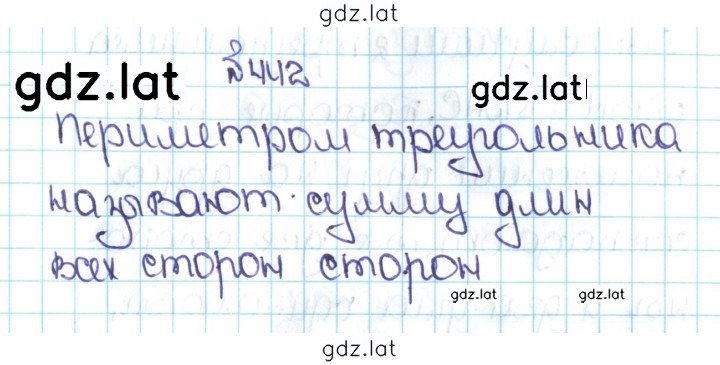 gdz.lat
№442
gdz.lat gdz.lat
Периметром треугольника
называют сумму длин
всех сторон сторон
gdz.lat gdz.lat
gdz.lat